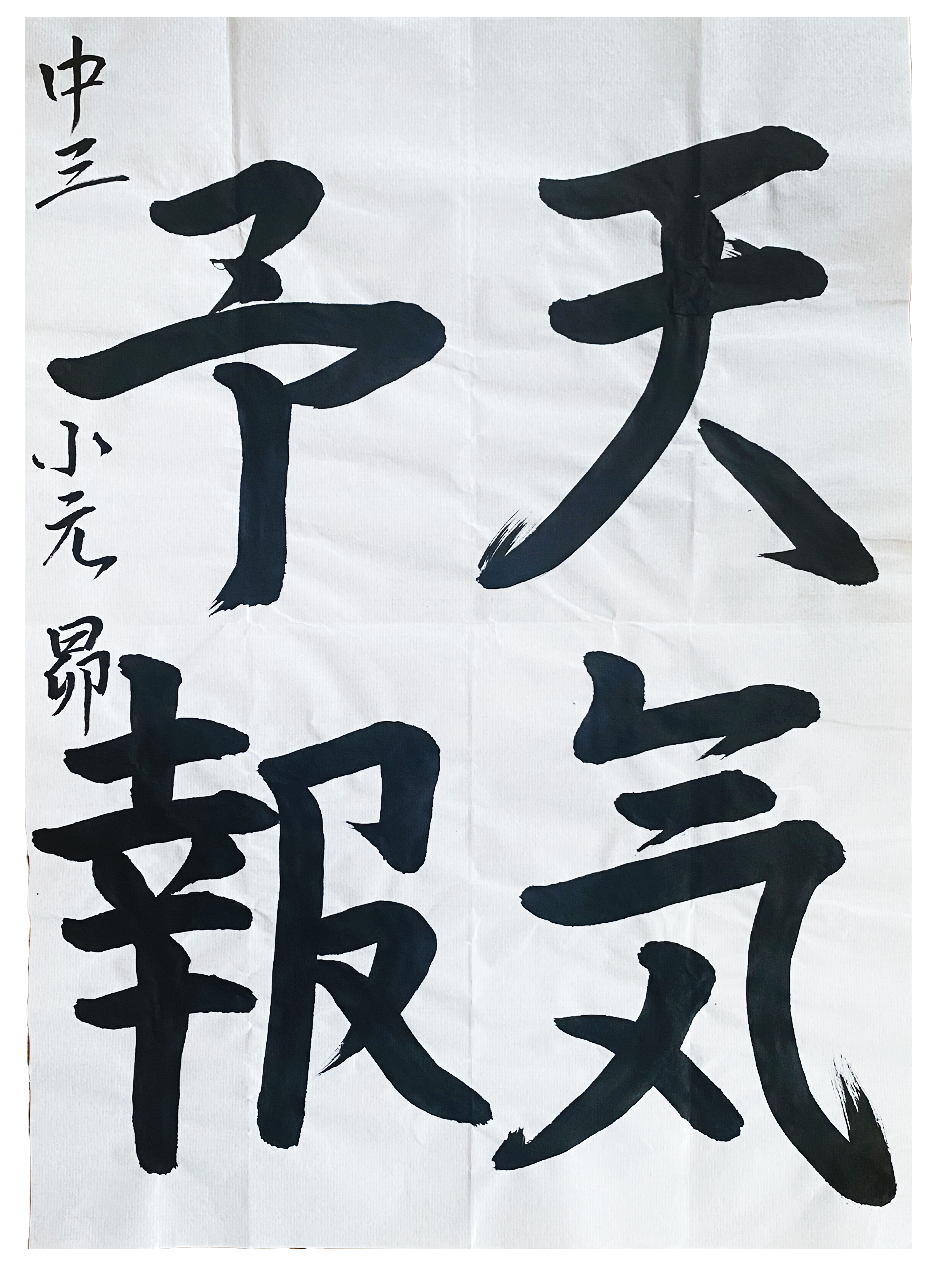 天気
予報
中三 小元 昴